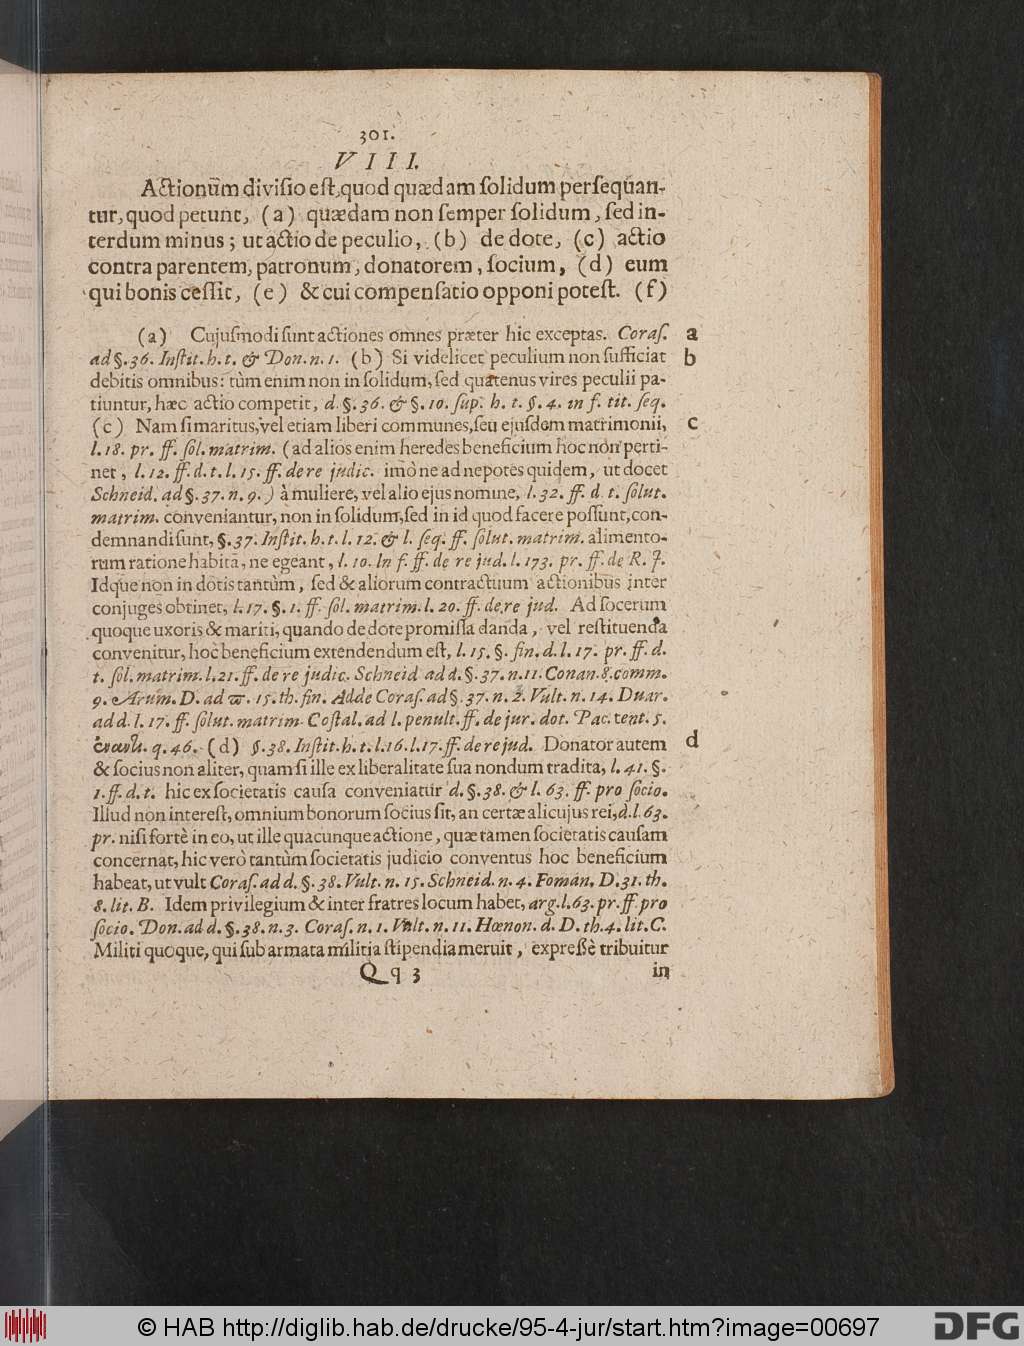 301.
VIII.
Actionum̃ divisio est, quod quædam solidum persequan-
tur, quod petunt, (a) quædam non semper solidum, sed in-
terdum minus; ut actio de peculio, (b) de dote, (c) actio
contra parentem, patronum, donatorem, socium, (d) eum
qui bonis cessit, (e) & cui compensatio opponi potest. (f)
(a) Cujusmodi sunt actiones omnes præter hic exceptas. Coras. a
ad §. 36. Instit. h. t. & Don. n. 1. (b) Si videlicet peculium non sufficiat b
debitis omnibus: tùm enim non in solidum, sed quatenus vires peculii pa-
tiuntur, hæc actio competit, d. §. 36. & §. 10. sup. h. t. §. 4. in f. tit. seq.
(c) Nam si maritus, vel etiam liberi communes, seu ejusdem matrimonii, c
l. 18. pr. ff. sol. matrim. (ad alios enim heredes beneficium hoc non perti-
net, l. 12. ff. d. t. l. 15. ff. de re judic. imò ne ad nepotes quidem, ut docet
Schneid. ad §. 37. n. 9.) à muliere, vel alio ejus nomine, l. 32. ff. d. t. solut.
matrim. conveniantur, non in solidum, sed in id quod facere possunt, con-
demnandi sunt, §. 37. Instit. h. t. l. 12. & l. seq. ff. solut. matrim. alimento-
rum ratione habitâ, ne egeant, l. 10. In f. ff. de re jud. l. 173. pr. ff. de R. J.
Idque non in dotis tantùm, sed & aliorum contractuum actionibus inter
conjuges obtinet, l. 17. §. 1. ff. sol. matrim. l. 20. ff. de re jud. Ad socerum
quoque uxoris & mariti, quando de dote promissa danda, vel restituenda
convenitur, hoc beneficium extendendum est, l. 15. §. fin. d. l. 17. pr. ff. d.
t. sol. matrim. l. 21. ff. de re judic. Schneid ad d. §. 37. n. 11. Conan. 8. comm.
9. Arum. D. ad ϖ. 15. th. fin. Adde Coras. ad §. 37. n. 2. Vult. n. 14. Duar.
ad d. l. 17. ff. solut. matrim. Costal. ad l. penult. ff. de jur. dot. Pac. cent. 5.
q. 46. (d) §. 38. Instit. h. t. l. 16. l. 17. ff. de re jud. Donator autem d
& socius non aliter, quam si ille ex liberalitate sua nondum tradita, l. 41. §.
1. ff. d. t. hic ex societatis causa conveniatur d. §. 38. & l. 63. ff. pro socio.
Illud non interest, omnium bonorum socius sit, an certæ alicujus rei, d. l. 63.
pr. nisi fortè in eo, ut ille quacunque actione, quæ tamen societatis causam
concernat, hic verò tantùm societatis judicio conventus hoc beneficium
habeat, ut vult Coras. ad d. §. 38. Vult. n. 15. Schneid. n. 4. Foman. D. 31. th.
8. lit. B. Idem privilegium & inter fratres locum habet, arg. l. 63. pr. ff. pro
socio. Don. ad d. §. 38. n. 3. Coras. n. 1. Vult. n. 11. Hœnon. d. D. th. 4. lit. C.
Militi quoque, qui sub armata militia stipendia meruit, expreßè tribuitur
Qq 3 in
© HAB http://diglib.hab.de/drucke/95-4-jur/start.htm?image=00697
DFG